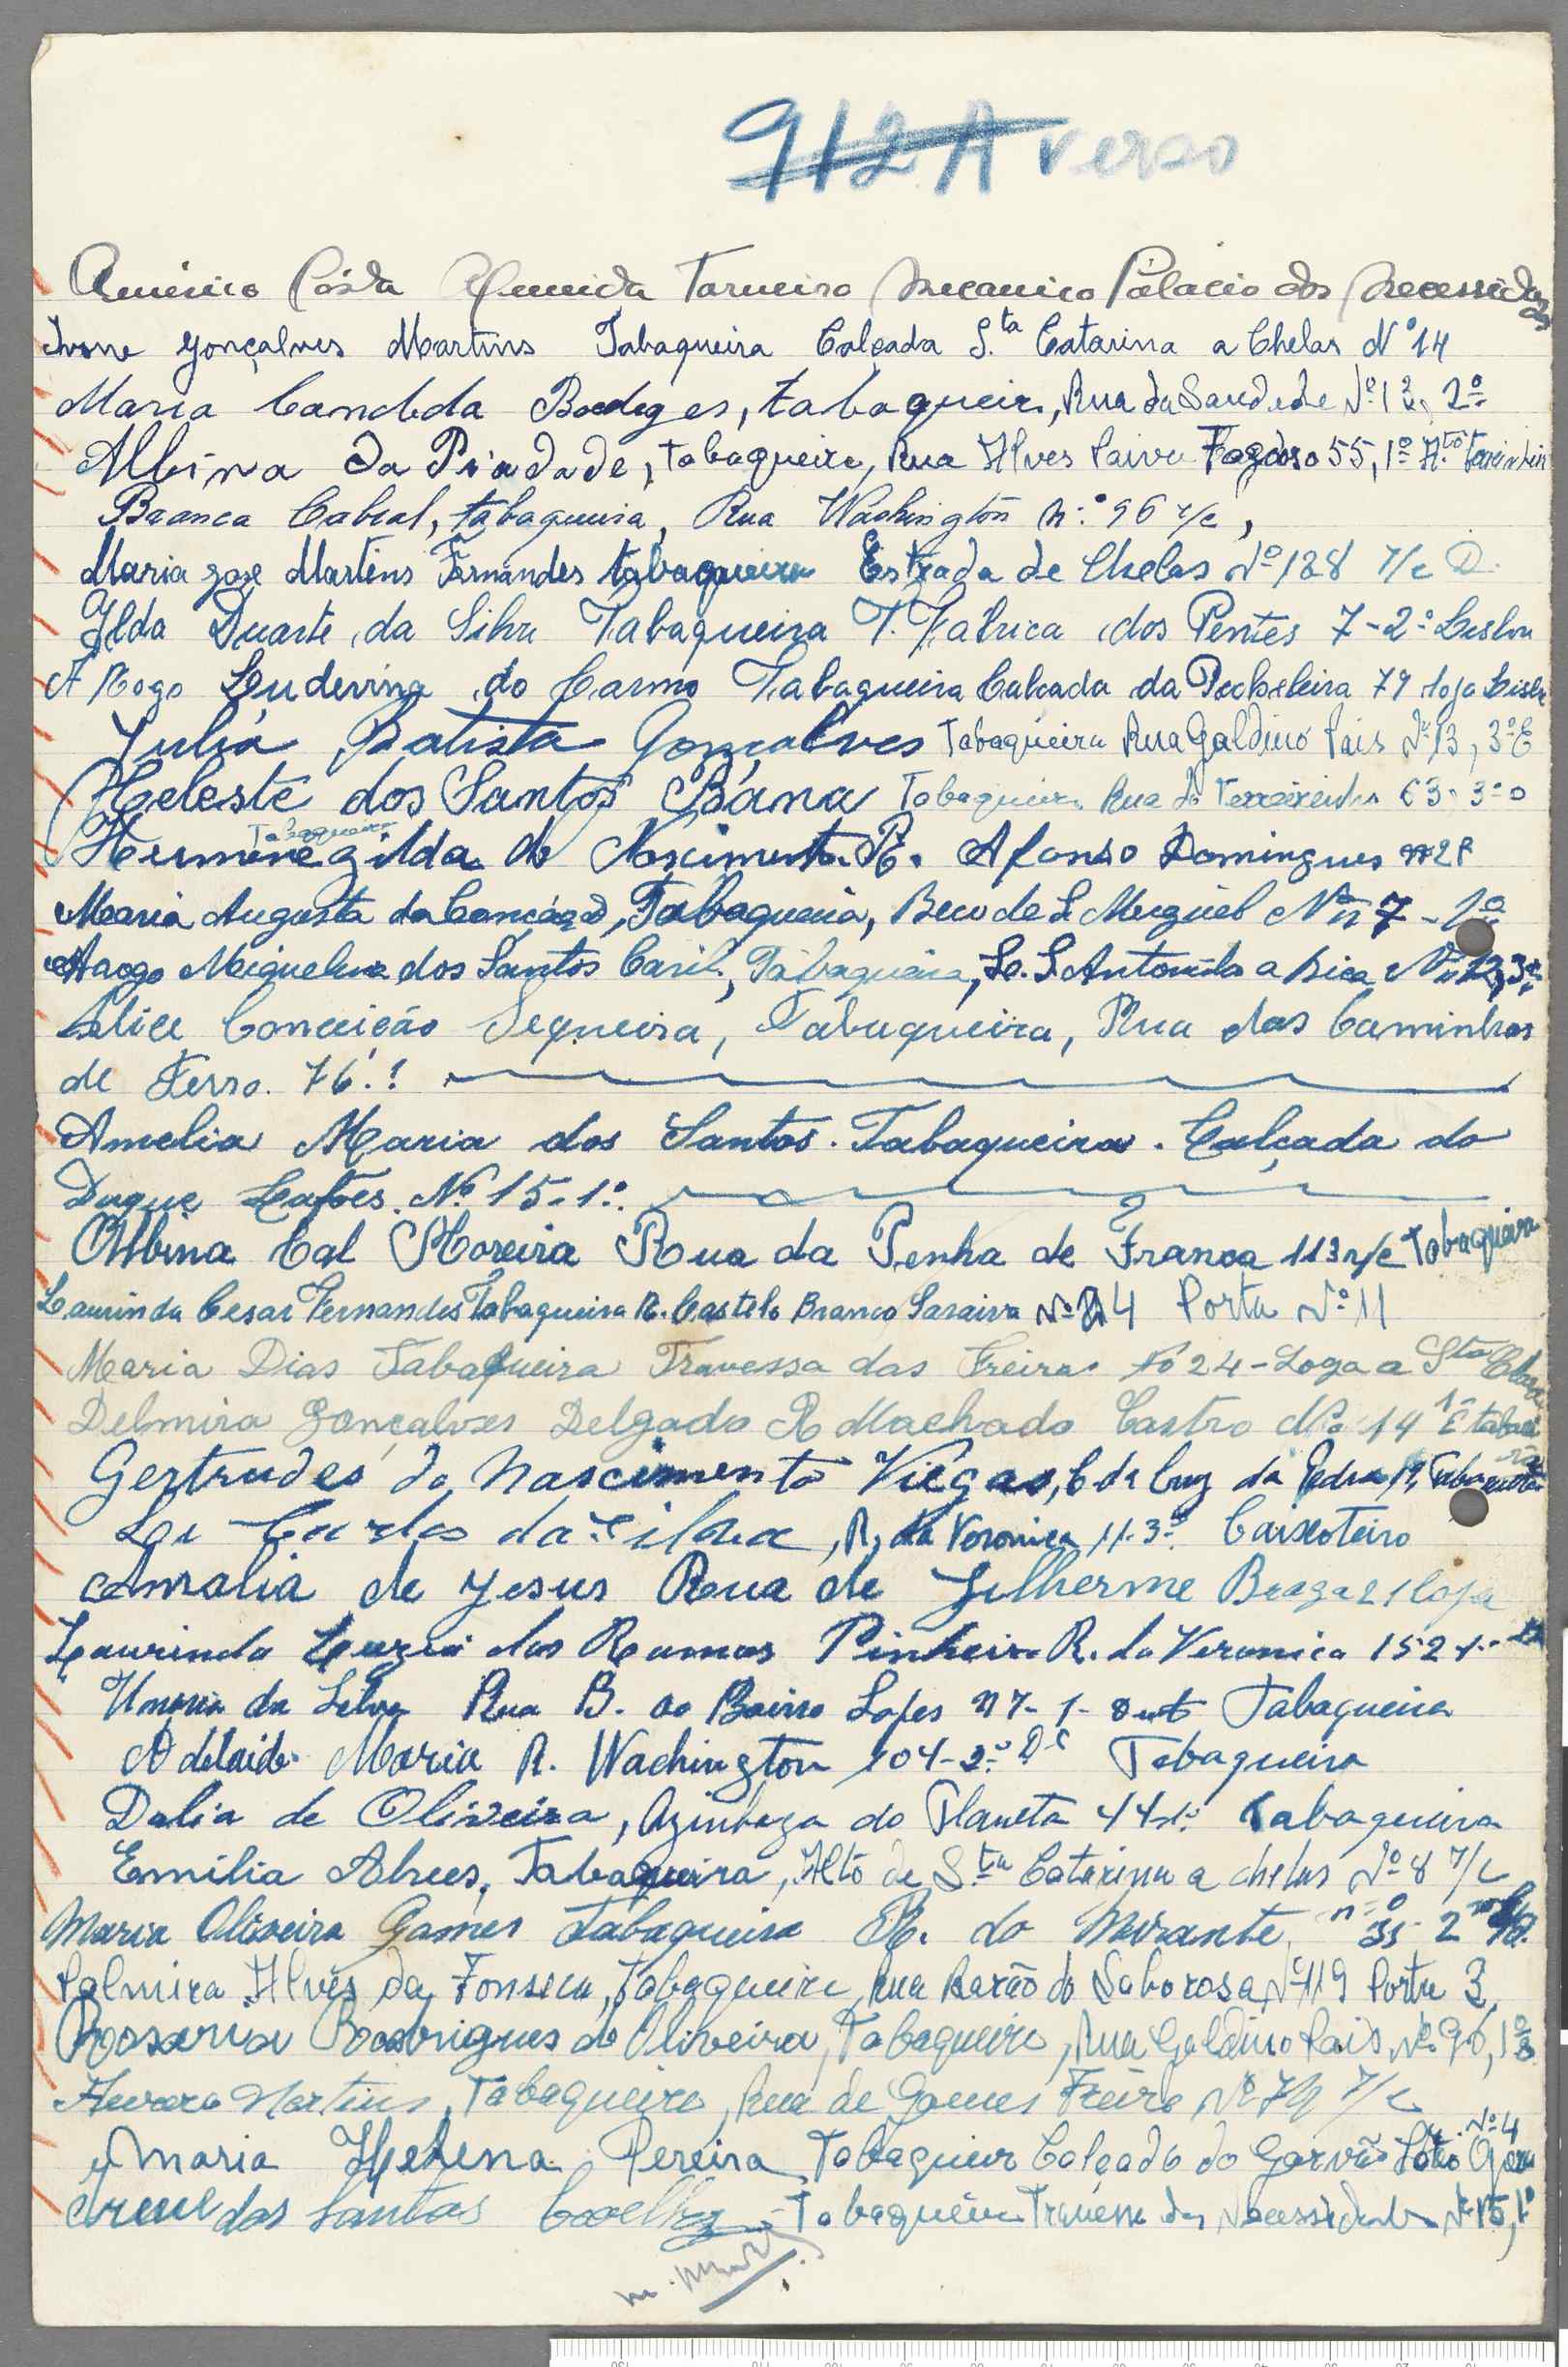 912 A verso
Américo Costa Almeida Torneiro Mecanico Palacio das Necessidades
Ivone Gonçalves Martins Tabaqueira Calçada S.ta Catarina a Chelas Nº 14
Maria Candeda Boedeges, tabaqueira, Rua da Saudede Nº 12, 2º
Albina da Piadade, tabaqueira, Rua Alves Paiva Fragoso 55, 1º Atº
Baanca Cabral, tabaqueira, Rua Wachington n.º 96 r/c,
Maria Jose Martins Fernandes tabaqueira Estrada de Chelas Nº 128 r/c D.
Ilda Duarte da Silva Tabaqueira T. Fabrica dos Pentes 7-2º Lisboa
A Rogo Leuderina do Carmo Tabaqueira Calcada da Picheleira 79 loja Lisboa
Julia Batista Gonçalves Tabaqueira Rua Galdino Pais Nº 13, 3º E
Heleste dos Santos Bana Tabaqueira Rua de 63, 3º
Tabaqueira
Hermenegilda do Nascimento R. Afonso Domingues 28
Maria Augusta da Tabaqueira, Beco de S. Miguel Nº 7 - 1º
A rogo Miguelina dos Santos Tabaqueira, a Bica Nº 12, 3º
Alice Conceição Sequeira, Tabaqueira, Rua dos Caminhos
de Ferro. 76.!
Amelia Maria dos Santos. Tabaqueira. Calçada do
Duque Lafões. Nº 15-1º.
Albina Cal Moreira Rua da Penha de França 113 r/c Tabaqueira
Laurinda Cesar Fernandes Tabaqueira R. Castelo Branco Saraiva Nº 24 Porta Nº 11
Maria Dias Tabaqueira Travessa das Freiras Nº 24-Loga a Sta Clara
Delmira Gonçalves Delgado R Machado Castro Nº 14 1º E
Gertrudes do Nascimento Viegas, C. da Cruz da Pedra
Carlos da Silva, R. da Veronica 11-3º Caixoteiro
Amalia de Jesus Rua de Gilherme Braga 21 loja
Laurinda Luzia dos Ramos Pinheiro R. da Veronica 152 1º
da Silva Rua B. ao Bairro Lopes n 7-1- Tabaqueira
Adelaide Maria R. Wachington 104-2º Dº Tabaqueira
Dalia de Oliveira, Azinhaga do Planeta 44 Tabaqueira
Emilia Abreu, Tabaqueira, Alto de S.ta Catarina a chelas Nº 8 r/c
Maria Oliveira Gomes Tabaqueira R. do Mirante, nº 35-2º
Palmira Alves da Fonseca, Tabaqueira, Rua Barão de Saborosa, Nº 119 Porta 3,
Rosaria Roodrigues de Oliveira, Tabaqueira, Rua Galdino Pais, Nº 96, 1º
Aurora Martins, Tabaqueira, Rua de Gomes Freire Nº 79 r/c
Maria Helena Pereira Tabaqueira Calçada do Garvão Nº 4
Irene dos Santos Coelho Tabaqueira Travessa das Necessidades Nº 15, 1º